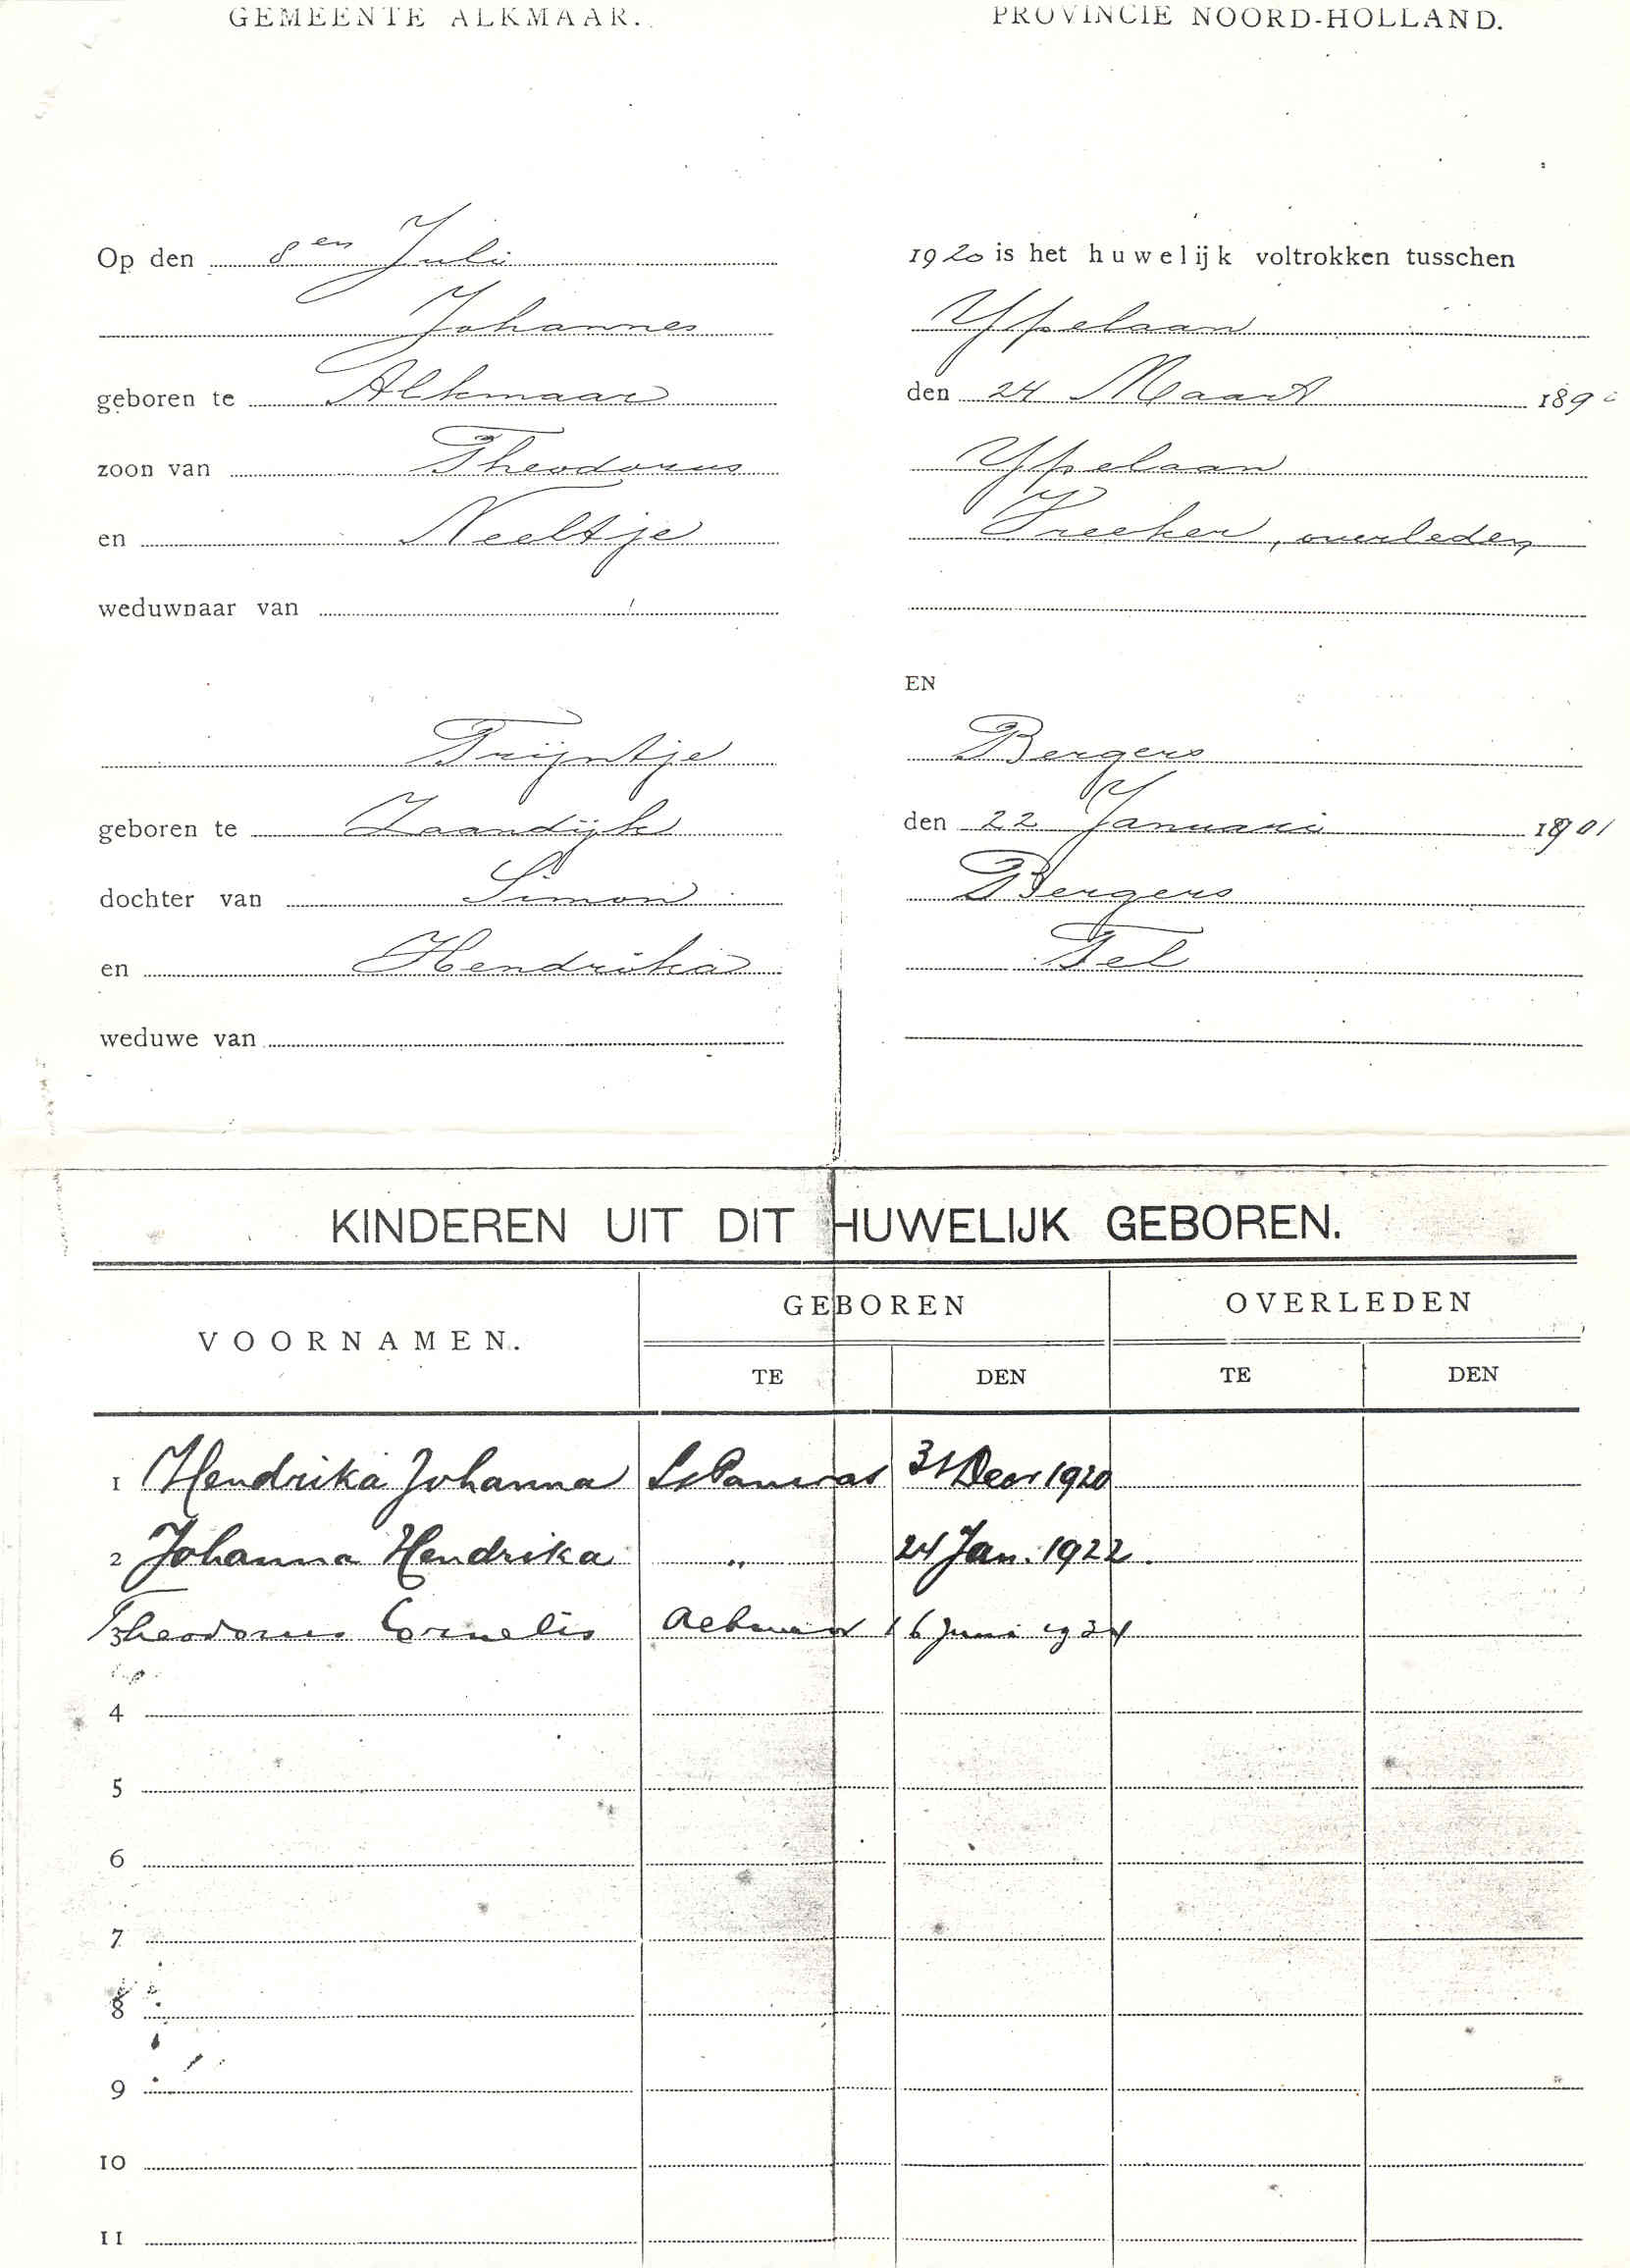 GEMEENTE ALKMAAR. PROVINCIE NOORD-HOLLAND.
Op den 8en Juli 1920 is het huwelijk voltrokken tusschen
Johannes Ypelaan
geboren te Alkmaar den 24 Maart 189
zoon van Theodorus Ypelaan
en Neeltje Vreeker, overleden
weduwnaar van
EN
Trijntje Bergers
geboren te Zaandijk den 22 Januari 1901
dochter van Simon Bergers
en Hendrika Tel
weduwe van
KINDEREN UIT DIT HUWELIJK GEBOREN.
VOORNAMEN. GEBOREN OVERLEDEN
TE DEN TE DEN
1 Hendrika Johanna St Pancras 31 Decr 1920
2 Johanna Hendrika " 24 Jan. 1922.
3 Theodorus Cornelis Alkmaar 16 Juni 1934
4
5
6
7
8
9
10
11